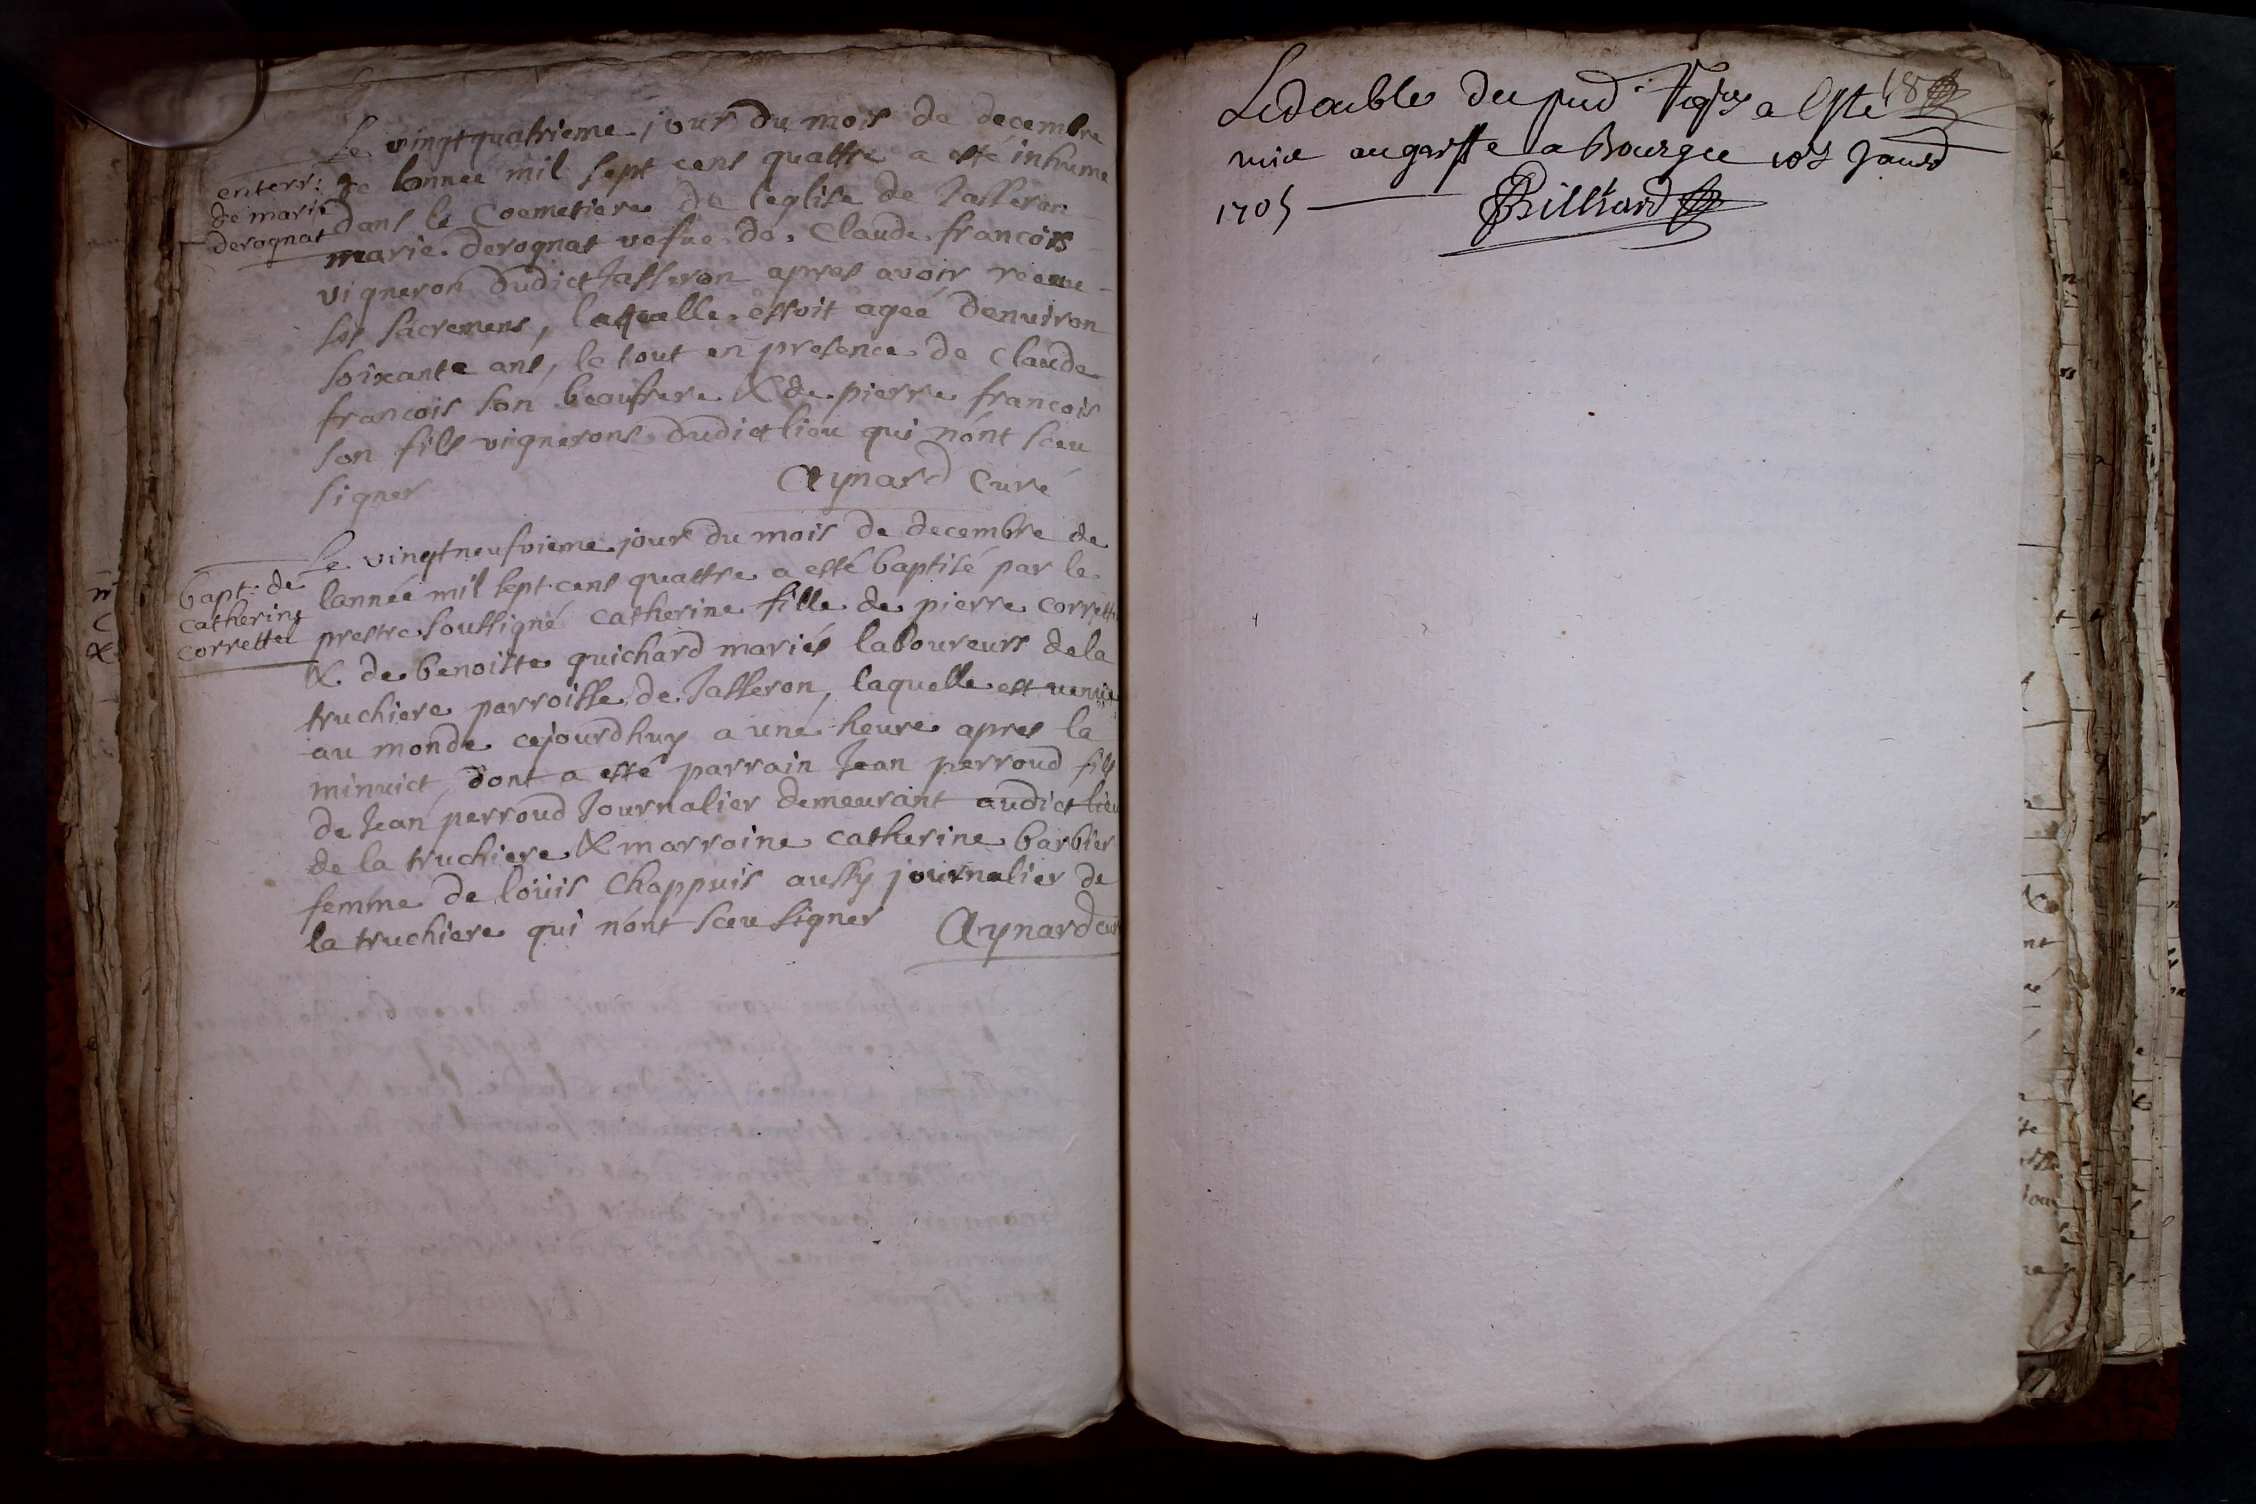 enterr:
de marie
derognat
Le vingtquatrieme jour du mois de decembre
de lannée mil sept cens quattre a esté inhumé
dans le Coemetiere de leglise de Jasseron
marie derognat vefue de Claude francois
vigneron dudict Jasseron apres avoir receue
les sacremens, laquelle estoit ageé denuiron
soixante ans, le tout en presence de Claude
francois son beaufrere & de pierre francois
son fils vignerons dudict lieu qui nónt sceu
signer Aynard Curé
bapt: de
catherine
correttet
Le vingtneufvieme jour du mois de decembre de
lannée mil sept cens quattre a esté baptisé par le
prestre soussigné catherine fille de pierre corrett
& de benoiste guichard mariés laboureurs de la
truchiere parroisse de Jasseron, laquelle est venue
au monde cejourdhuy a une heure apres la
minuict, dont a esté parrain Jean perroud fils
de Jean perroud Journalier demeurant audict lieu
de la truchiere & marraine catherine barbier
femme de loüis Chappuis aussy journalier de
la truchiere qui nónt sceu signer Aynard cur
Le double du pnd a Este
mis au greffe a Bourg ce Janvr
1705 Billiard
18